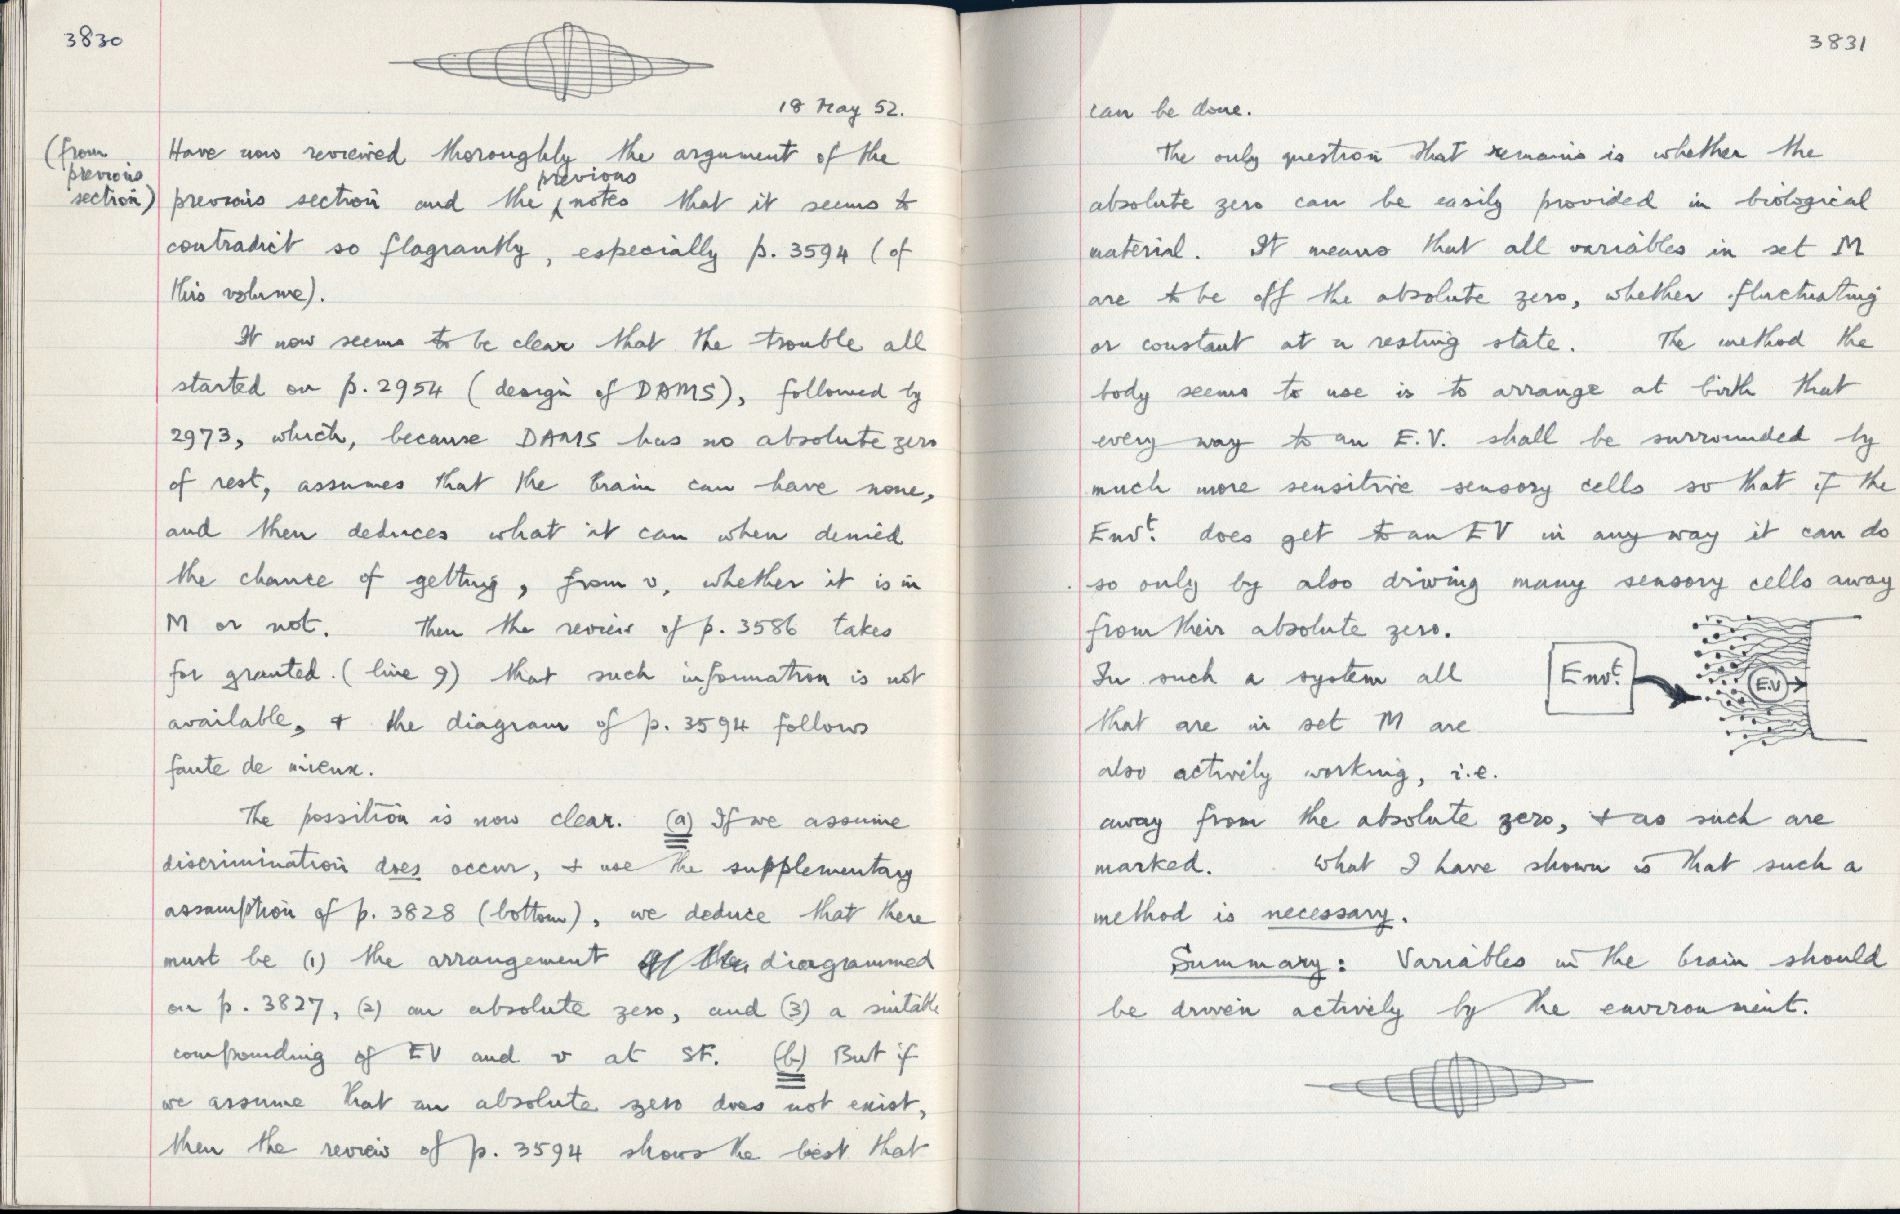 3830
18 May 52.
(from
previous
section)
Have now reviewed thoroughly the argument of the
previous
previous section and the notes that it seems to
contradict so flagrantly, especially p. 3594 (of
this volume).
It now seems to be clear that the trouble all
started on p. 2954 (design of DAMS), followed by
2973, which, because DAMS has no absolute zero
of rest, assumes that the brain can have none,
and then deduces what it can when denied
the chance of getting, from v, whether it is in
M or not. Then the review of p. 3586 takes
for granted (line 9) that such information is not
available, & the diagram of p. 3594 follows
faute de mieux.
The possition is now clear. (a) If we assume
discrimination does occur, & use the supplementary
assumption of p. 3828 (bottom), we deduce that there
must be (1) the arrangement diagrammed
on p. 3827, (2) an absolute zero, and (3) a suitable
compounding of EV and v at SF. (b) But if
we assume that an absolute zero does not exist,
then the review of p. 3594 shows the best that
3831
can be done.
The only question that remains is whether the
absolute zero can be easily provided in biological
material. It means that all variables in set M
are to be off the absolute zero, whether fluctuating
or constant at a resting state. The method the
body seems to use is to arrange at birth that
every way to an E.V. shall be surrounded by
much more sensitive sensory cells so that if the
Envt. does get to an EV in any way it can do
so only by also driving many sensory cells away
from their absolute zero.
In such a system all
that are in set M are
also actively working, i.e.
Envt.
E.V
away from the absolute zero, & as such are
marked. What I have shown is that such a
method is necessary.
Summary: Variables in the brain should
be driven actively by the environment.